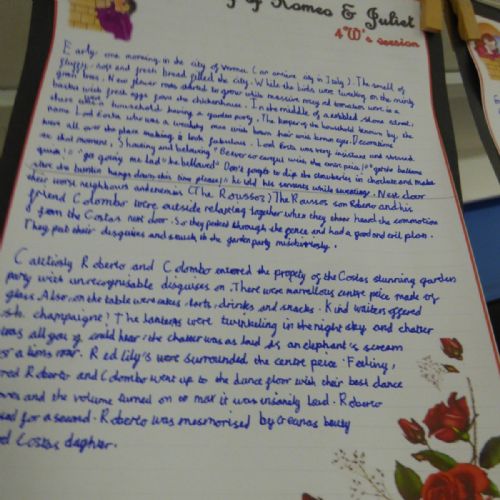 of Romeo & Juliet
4W's session
Early one morning in the city of Verona (an ancient city in Italy). The smell of
fluffy, soft and fresh bread filled the city. While the birds were tweeting on the minty
great trees. New flower roots started to grow while massive rosey red tomatoes were in a
basket with fresh eggs from the chickenhouse. In the middle of a cobbled stone street,
there was a household having a garden party. The keeper of the household known by the
name Lord Costa who was a wealthy man with brown hair and brown eyes. Decorations
were all over the place making it look fabulous. Lord Costa was very and stressed
at that moment, Shouting and bellowing "Be very careful with the centre peice!" "
quick!" "get going me lad" he bellowed "Don't forget to dip the strawberries in choclate and make
sure the bunten hangs down this time please!" he told his servants while sweating. Next door
their worst neighbours and enemies (The Roussos) The Roussos son Roberto and his
friend Colombo were outside relaxing together when they heard the commotion
from the Costas next door. So they peeked through the fence and had a good and evil plan.
They put their disguises and snuck to the garden party mischievously.
Cautiously Roberto and Colombo entered the propety of the Costas stunning garden
party with unrecognisable disguises on. There were marvellous centre peice made of
glass. Also, on the table were cakes, tarts, drinks and snacks. Kind waiters offered
champagne! The lanterns were twinkling in the night sky and chatter
was all you could hear, the chatter was as loud as an elephant's scream
or a lions roar. Red lily's were surrounded the centre peice. Feeling,
Roberto and Colombo went up to the dance floor with their best dance
and the volume turned on to max it was insanely loud. Roberto
for a second. Roberto was mesmorised by beuty
Costas daghter.